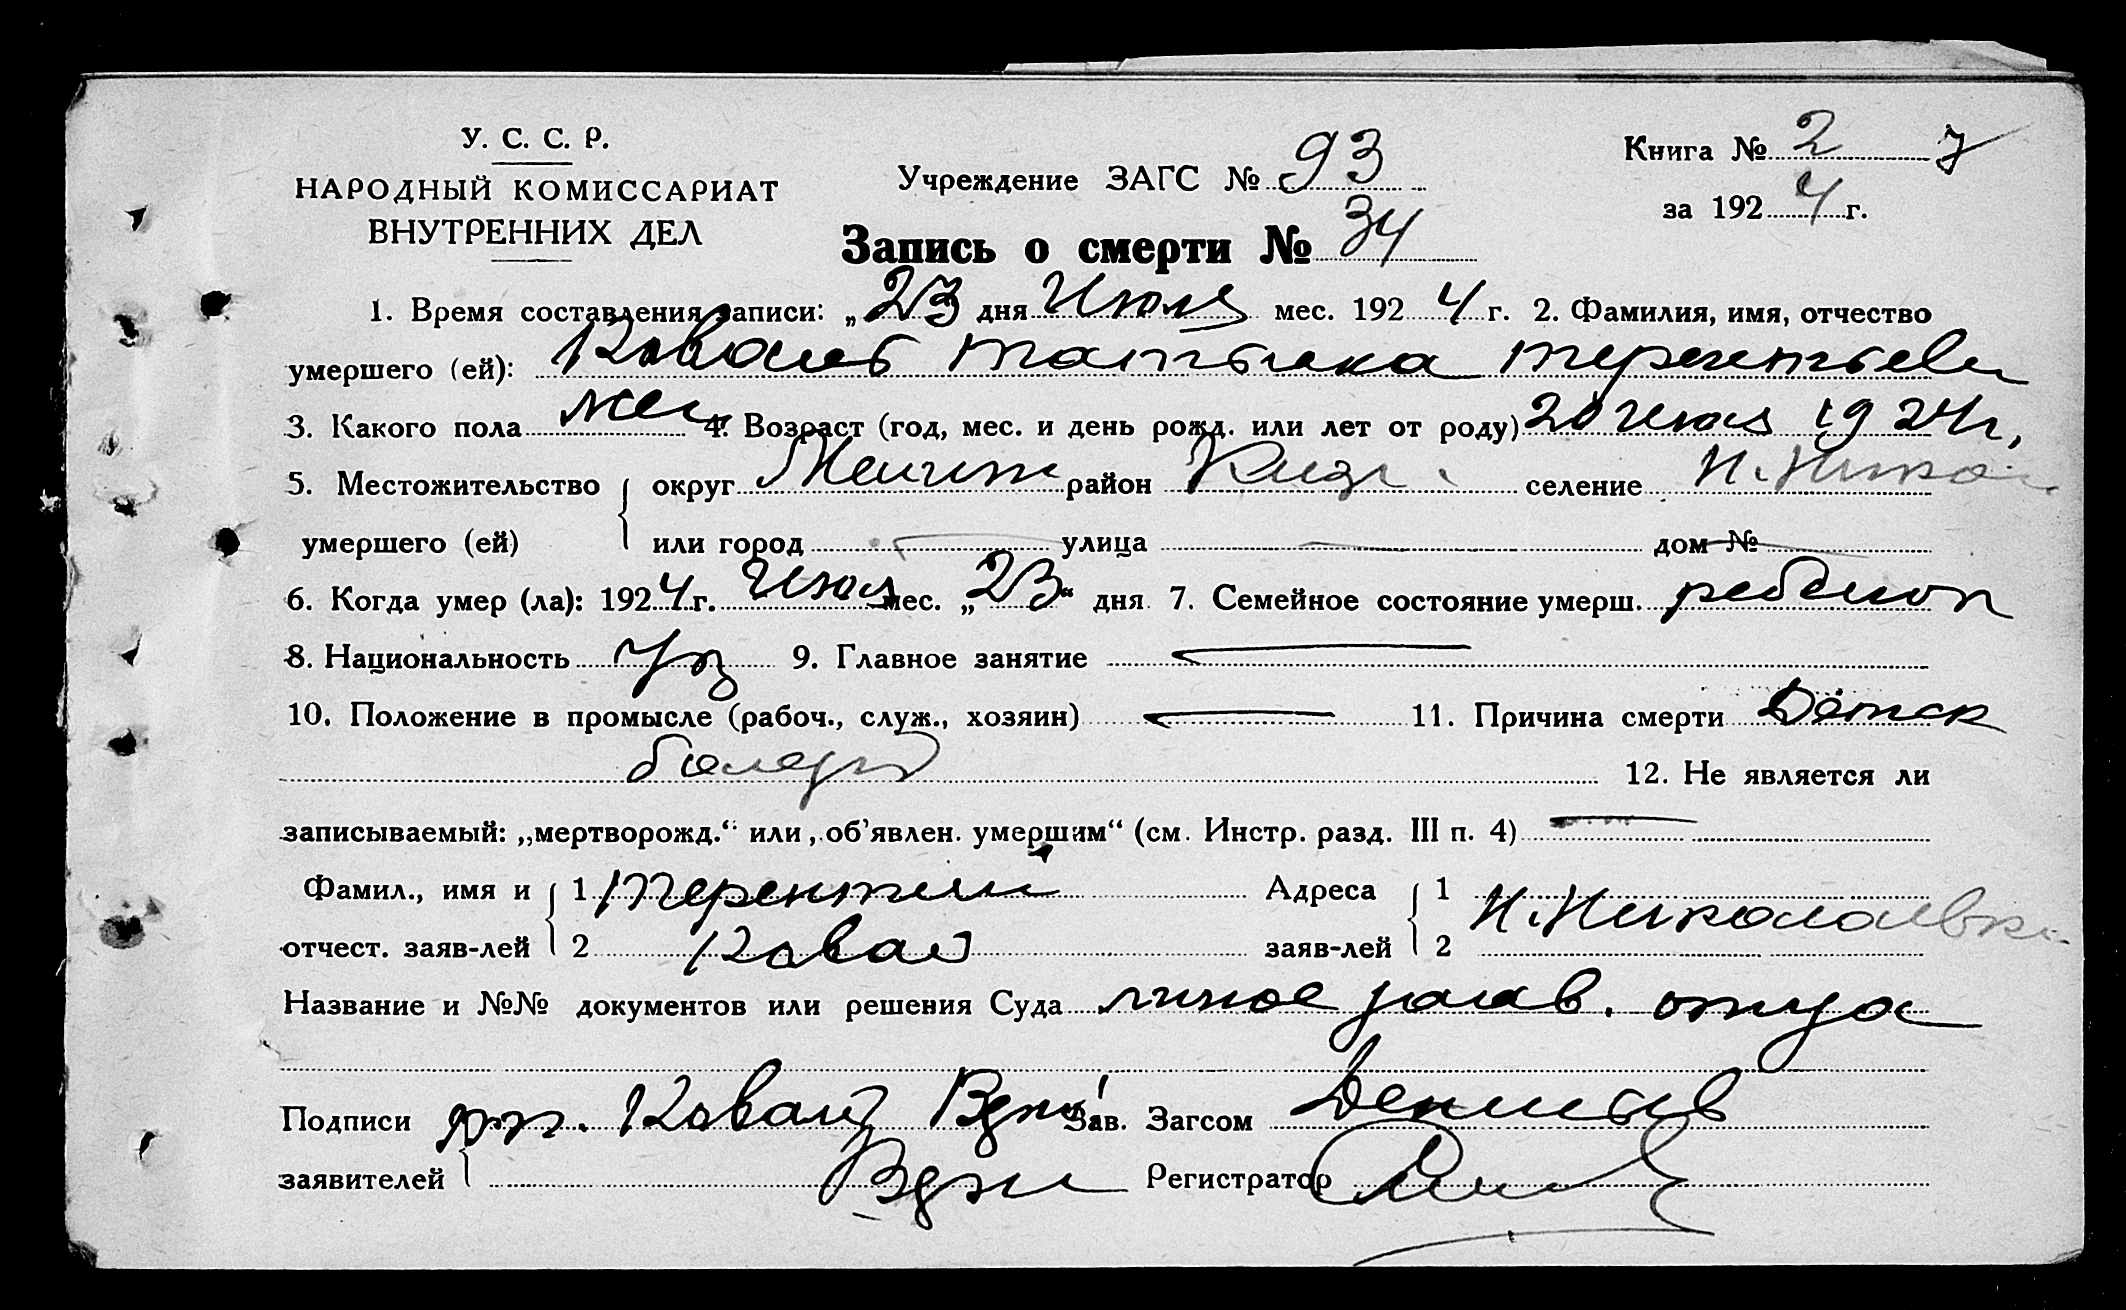 У. С. С. Р.
НАРОДНЫЙ КОМИССАРИАТ
ВНУТРЕННИХ ДЕЛ
Учреждение ЗАГС № 93
Книга № 2 7
за 1924 г.
Запись о смерти № 34
1. Время составления записи: „23 дня Июля мес. 1924 г. 2. Фамилия, имя, отчество
умершего (ей): Коваль Татьяна Терентьев
3. Какого пола жен 4. Возраст (год, мес. и день рожд. или лет от роду) 20 Июля 1924 г,
5. Местожительство округ район селение Н. Никол
умершего (ей) или город улица дом №
6. Когда умер (ла): 1924 г. Июля мес. „23“ дня 7. Семейное состояние умерш. ребенок
8. Национальность Ук 9. Главное занятие
10. Положение в промысле (рабоч., служ., хозяин) 11. Причина смерти Детск
12. Не является ли
записываемый: „мертворожд.“ или „об'явлен. умершим“ (см. Инстр. разд. III п. 4)
Фамил., имя и 1 Терентий Адреса 1 Н. Николаевка
отчест. заяв-лей 2 Коваль заяв-лей 2
Название и №№ документов или решения Суда личное заяв. отца
Подписи Коваль Зав. Загсом
заявителей Регистратор